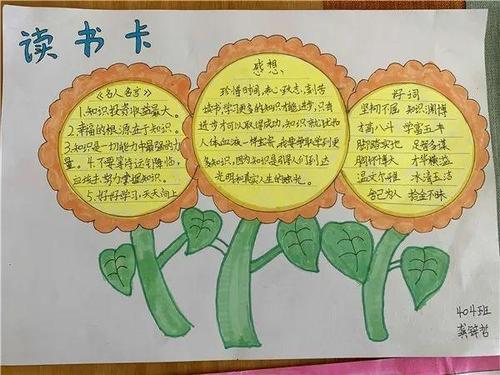 读书卡
《名人名言》
1.知识投资收益最大。
2.幸福的根源在于知识。
3.知识是一切能力中最强的力
量。4.不要等待运气降临。
应该去努力掌握知识。
5.好好学习,天天向上
感想
珍惜时间,
读书,学习更多的知识才能进步,只有
进步才可以取得成功,知识就犹如
人体血液一样宝贵,我要争取学到更
多知识,因为知识是引导人们到达
光明和真实人生的烛光。
好词
坚韧不屈 知识渊博
才高八斗 学富五车
脚踏实地 足智多谋
胸怀博大 才华横溢
温文尔雅 冰清玉洁
舍己为人 拾金不昧
404班
龚